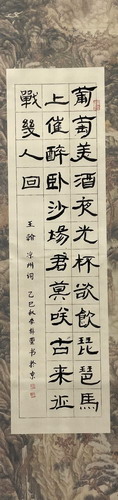 葡萄美酒夜光杯欲飲琵琶馬
上催醉卧沙場君莫咲古來征
戰幾人回
王翰 涼州詞 乙巳秋 书於京